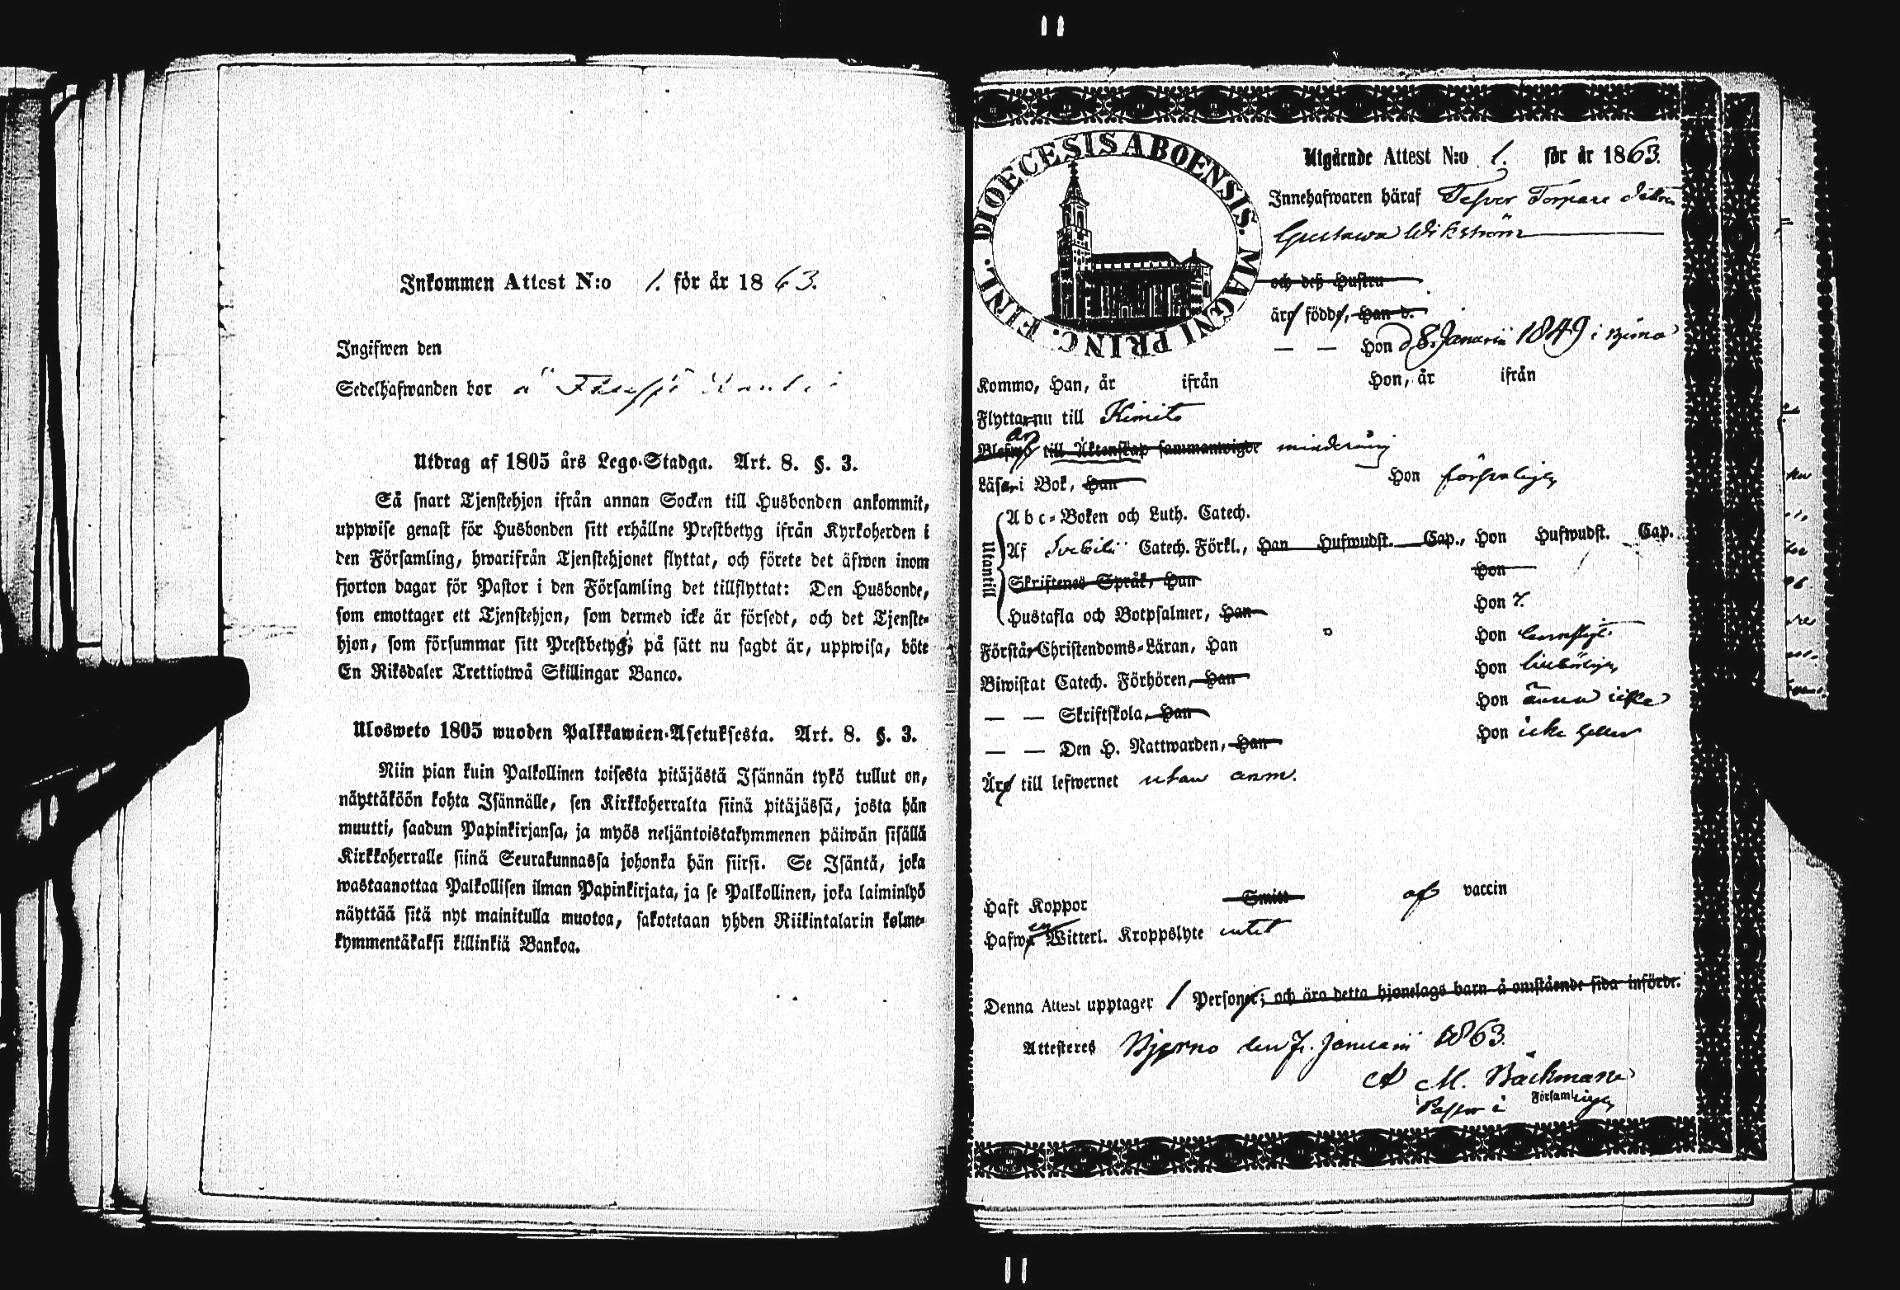 Inkommen Attest N:o 1. för år 1863.
Ingifwen den
Sedelhafwanden bor å
Utdrag af 1805 års Lego-Stadga. Art. 8. §. 3.
Så snart Tjenstehjon ifrån annan Socken till Husbonden ankommit,
uppwise genast för Husbonden sitt erhållne Prestbetyg ifrån Kyrkoherden i
den Församling, hwarifrån Tjenstehjonet flyttat, och förete det äfwen inom
fjorton dagar för Pastor i den Församling det tillflyttat: Den Husbonde,
som emottager ett Tjenstehjon, som dermed icke är försedt, och det Tjenste-
hjon, som försummar sitt Prestbetyg, på sätt nu sagdt är, uppwisa, böte
En Riksdaler Trettiotwå Skillingar Banco.
Ulosweto 1805 wuoden Palkkawäen-Asetuksesta. Art. 8. §. 3.
Niin pian kuin Palkollinen toisesta pitäjästä Isännän tykö tullut on,
näyttäköön kohta Isännälle, sen Kirkkoherralta siinä pitäjässä, josta hän
muutti, saadun Papinkirjansa, ja myös neljäntoistakymmenen päiwän sisällä
Kirkkoherralle siinä Seurakunnassa johonka hän siirsi. Se Isäntä, joka
wastaanottaa Palkollisen ilman Papinkirjata, ja se Palkollinen, joka laiminlyö
näyttää sitä nyt mainitulla muotoa, sakotetaan yhden Riikintalarin kolme-
kymmentäkaksi killinkiä Bankoa.
DIOECESIS ABOENSIS. MAGNI PRINC. FINL.
Utgående Attest N:o 1. för år 1863.
Innehafwaren häraf Torpare
Gustawa Wikström
och deß Hustru
äro födde, Han d.
— — Hon d 8 Januarii 1849 i
Kommo, Han, år ifrån Hon, år ifrån
Flyttar nu till Kimito
Blefwo till Äktenskap sammanwigde minderårig
Läsa i Bok, Han Hon försvarligen
Utantill
Abc-Boken och Luth. Catech.
Af Svebilii Catech. Förkl., Han Hufwudst. Cap., Hon Hufwudst. Cap.
Skriftenes Språk, Han Hon
Hustafla och Botpsalmer, Han Hon
Förstår Christendoms-Läran, Han Hon
Biwistat Catech. Förhören, Han Hon
— — Skriftskola, Han Hon ännu icke
— — Den H. Nattwarden, Han Hon icke heller
Äro till lefwernet utan anm.
Haft Koppor Smitt af vaccin
Hafwa Witterl. Kroppslyte intet
Denna Attest upptager 1 Personer; och äro detta hjonelags barn å omstående sida införde.
Attesteres Bjerno den 7. Januarii 1863.
A M. Bäckman
Pastor i Församlingen